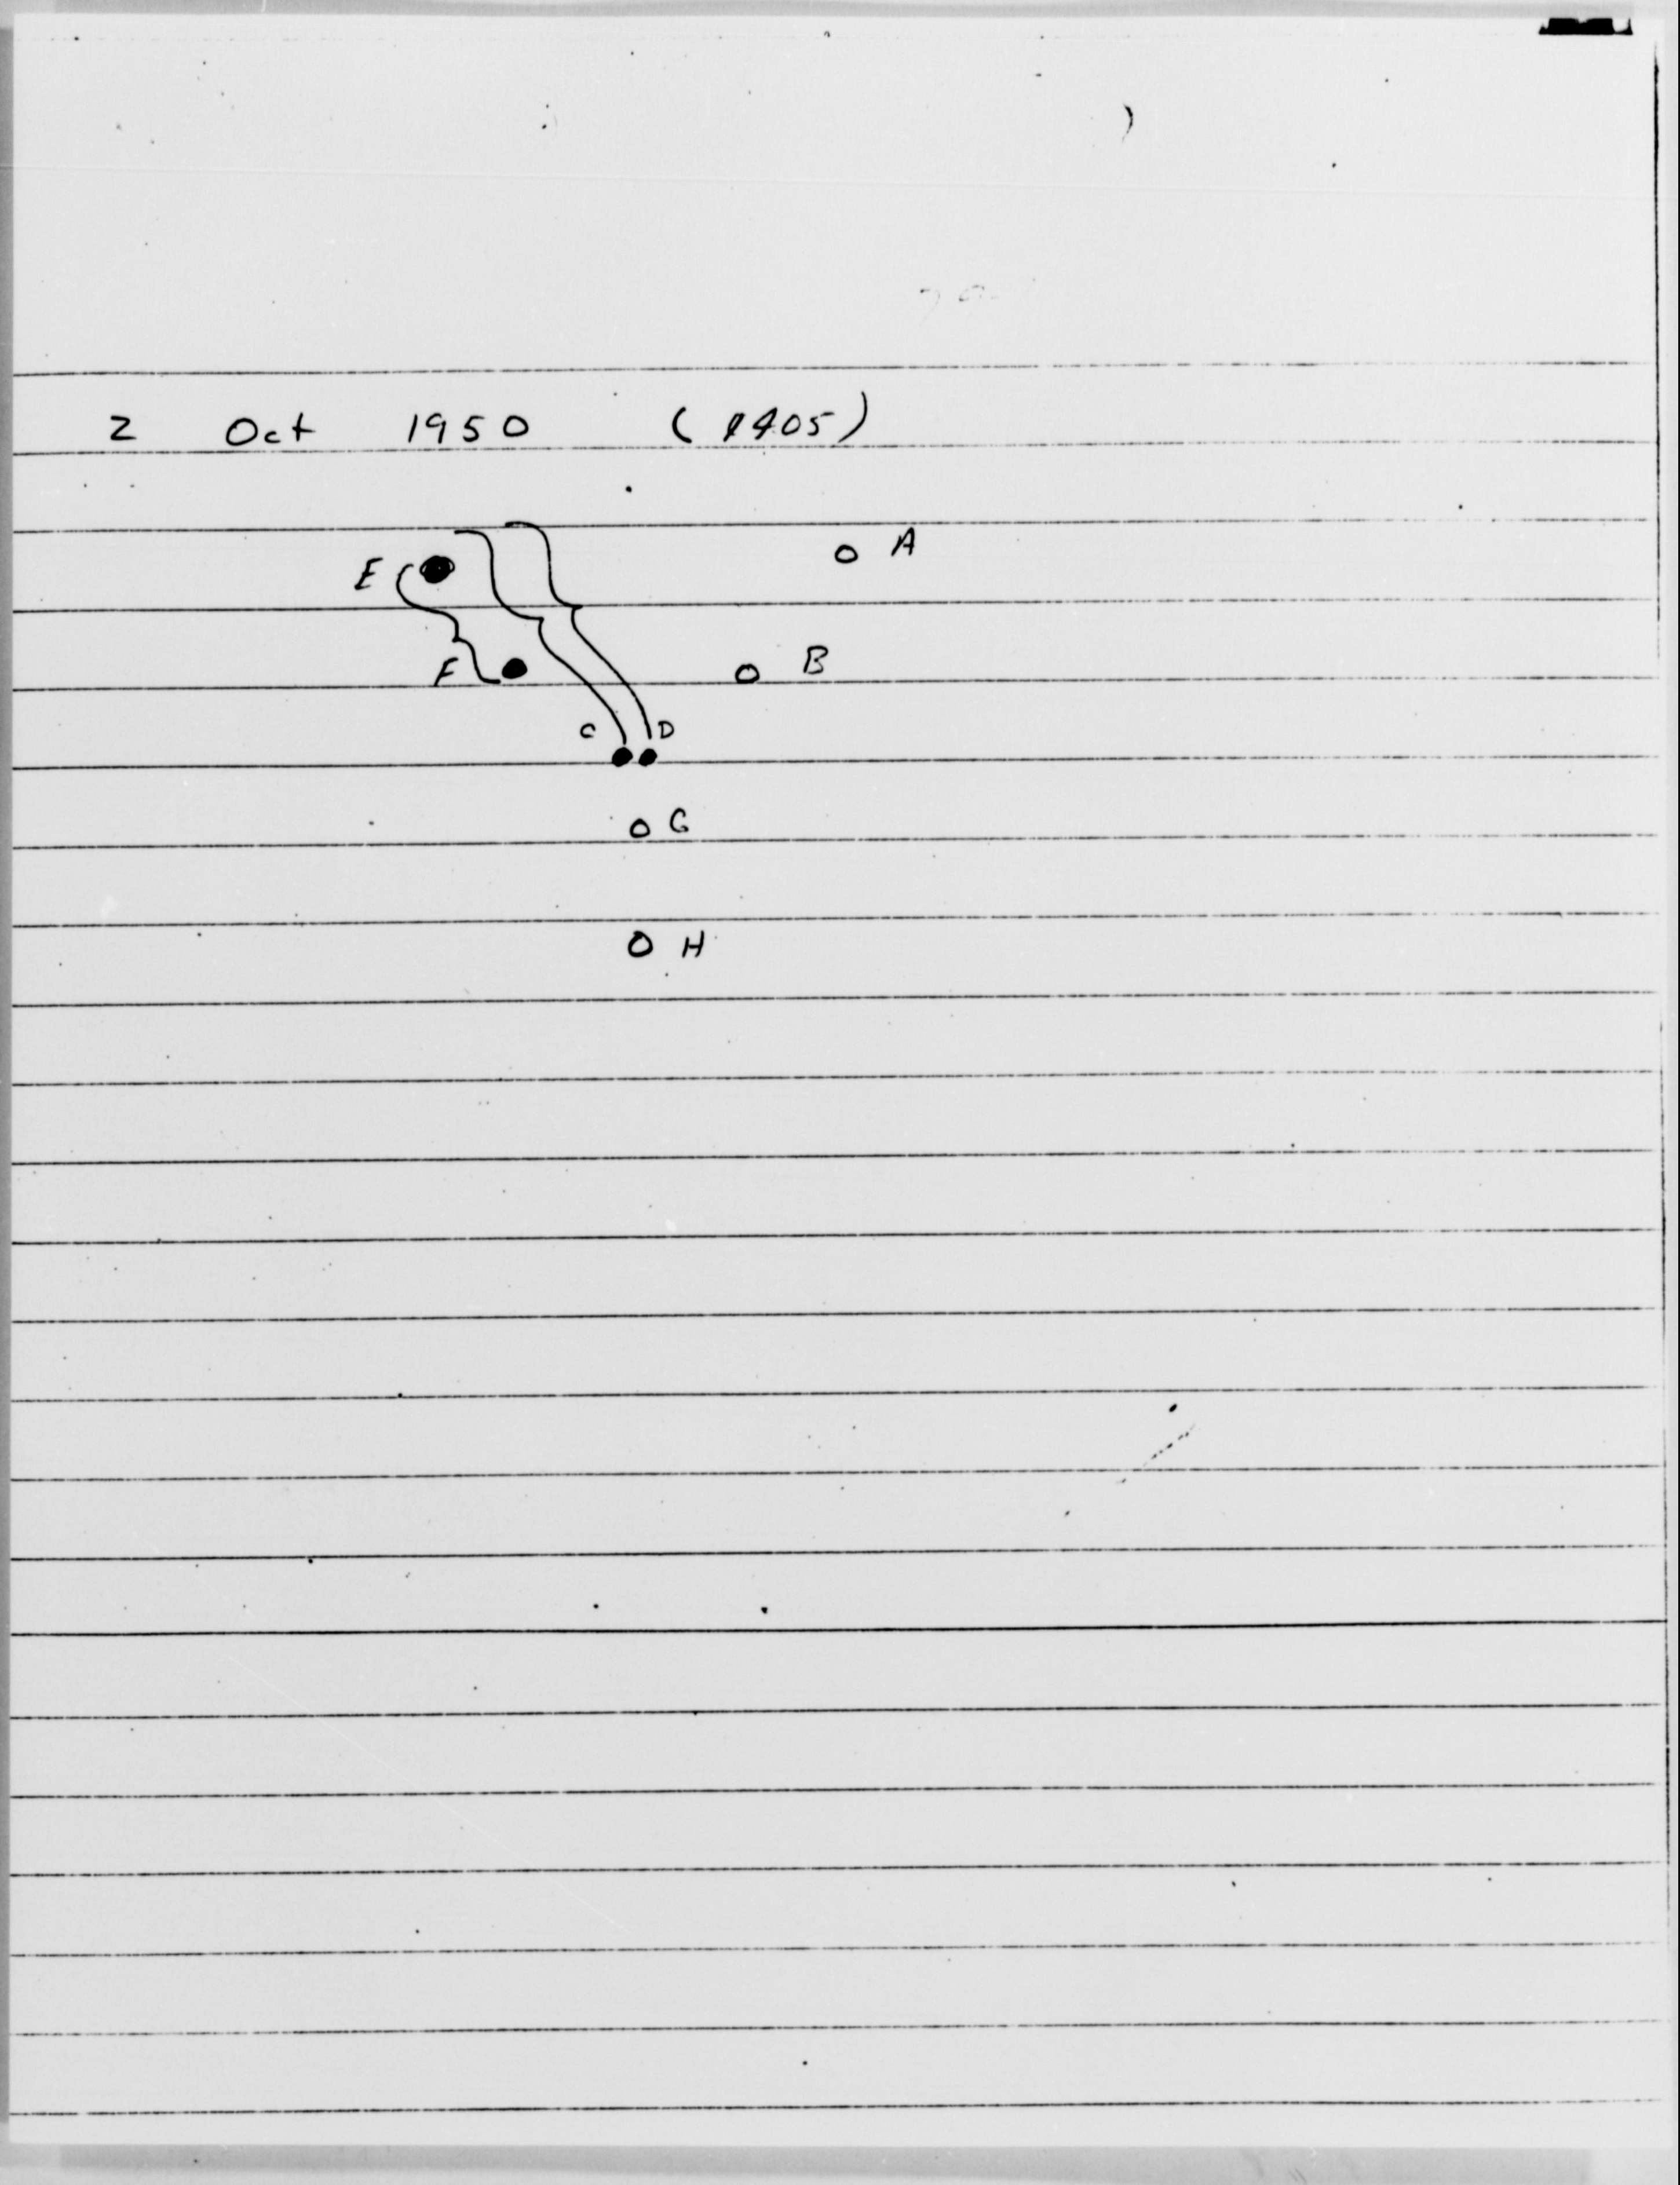 2 Oct 1950 (1405)
A
E
B
F
C D
G
H